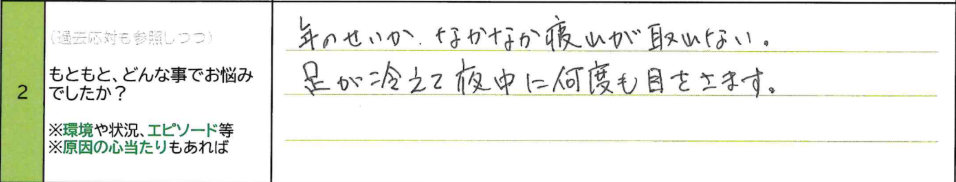 2
(過去応対も参照しつつ)
もともと、どんな事でお悩み
でしたか?
※環境や状況、エピソード等
※原因の心当たりもあれば
年のせいか、なかなか疲れが取れない。
足が冷えて夜中に何度も目をさます。